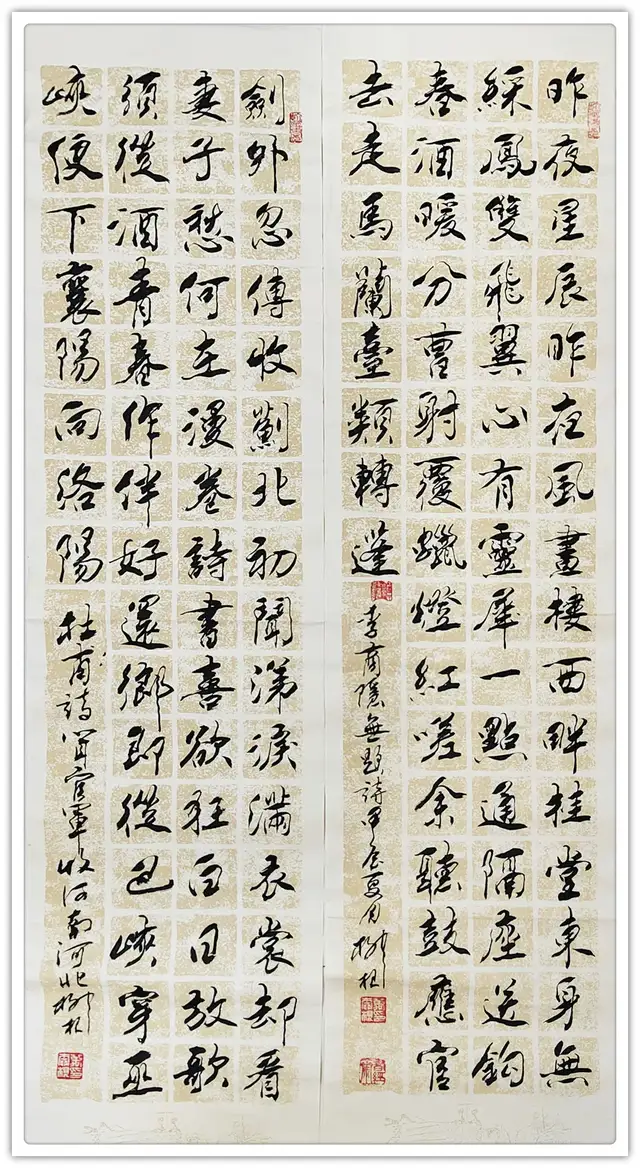 昨夜星辰昨夜風畫樓西畔桂堂東身無
綵鳳雙飛翼心有靈犀一點通隔座送鈎
春酒暖分曹射覆蠟燈紅嗟余聽鼓應官
去走馬蘭臺類轉蓬
李商隱無題詩甲辰夏月
劍外忽傳收薊北初聞涕淚滿衣裳却看
妻子愁何在漫卷詩書喜欲狂白日放歌
須從酒青春作伴好還鄉即從巴峽穿巫
峽便下襄陽向洛陽
杜甫詩聞官軍收河南河北